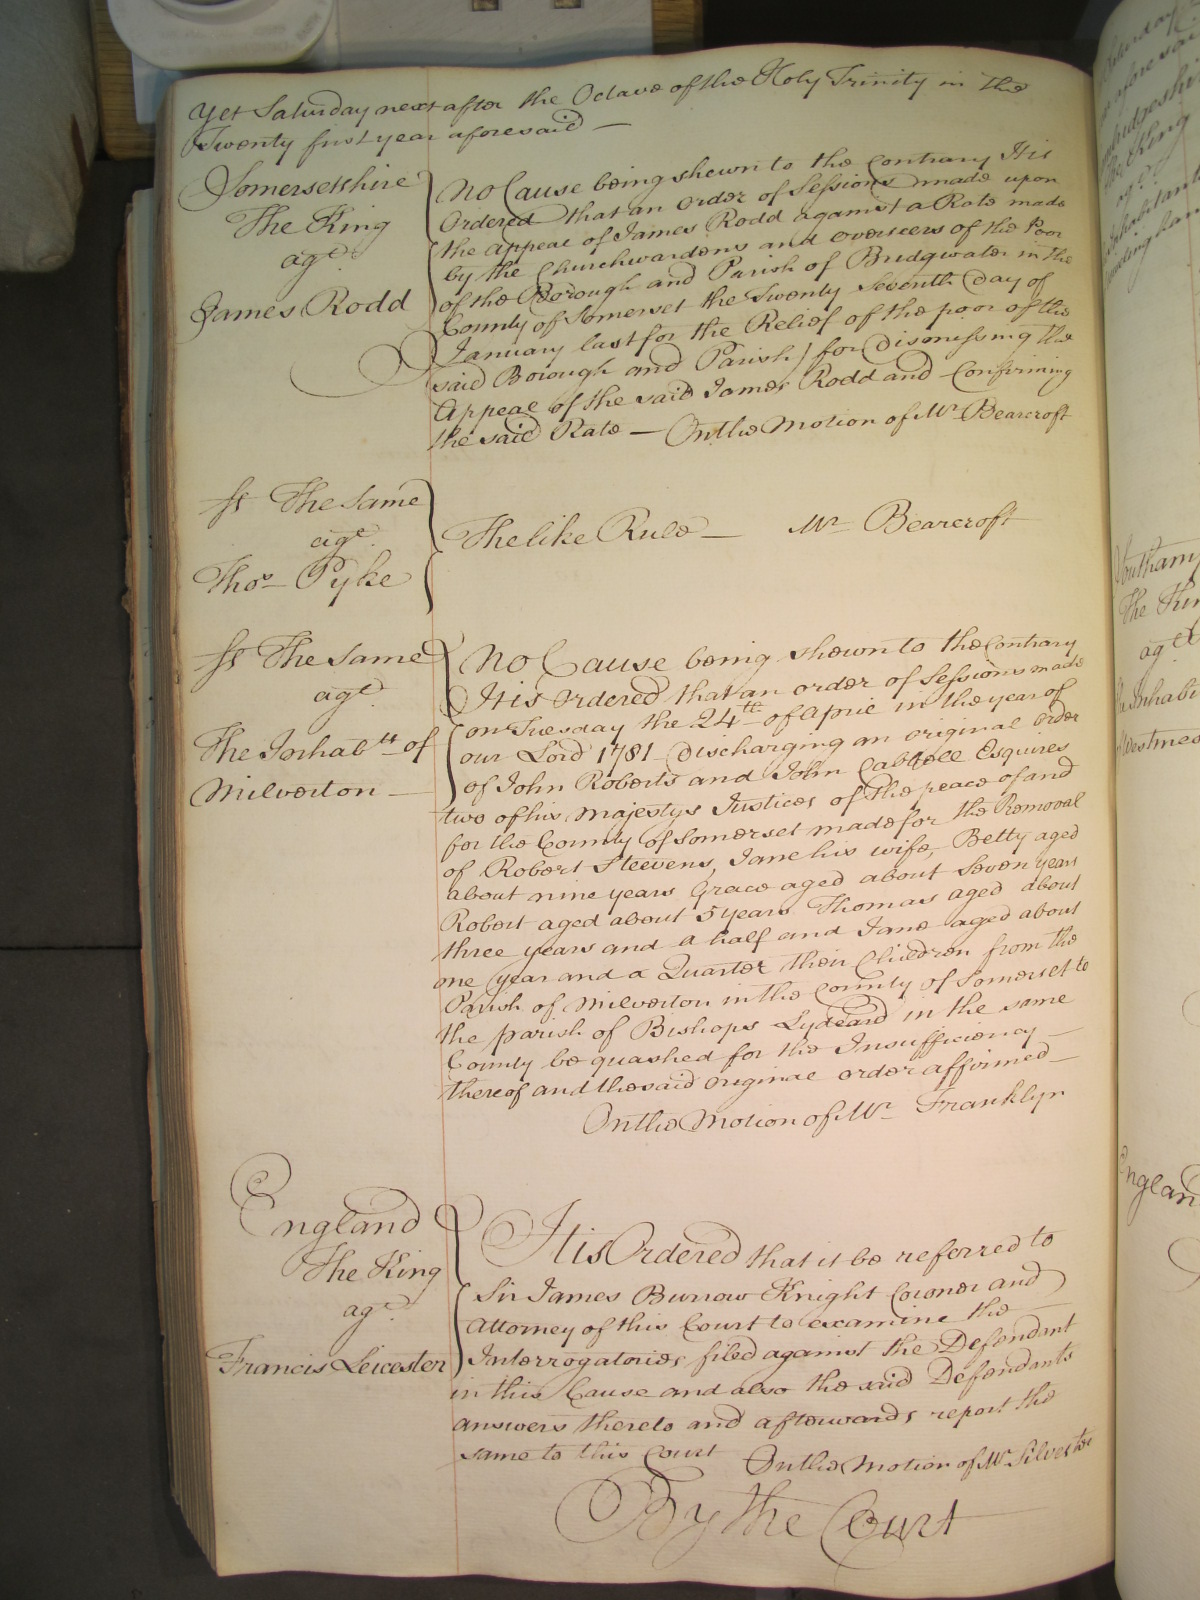 Yet Saturday next after the Octave of the Holy Trinity in the
Twenty first year aforesaid —
Somersetshire
The King
agt.
James Rodd
No Cause being shewn to the Contrary It is
Ordered that an order of Sessions made upon
the appeal of James Rodd against a Rate made
by the Churchwardens and overseers of the Poor
of the Borough and Parish of Bridgwater in the
County of Somerset the Twenty Seventh Day of
January last for the Relief of the poor of the
said Borough and Parish) for Dismissing the
Appeal of the said James Rodd and Confirming
the said Rate — On the Motion of Mr Bearcroft
ss The Same
agt.
Thos Pyke
The like Rule — Mr Bearcroft
ss The Same
agt.
The Inhabts of
Milverton —
No Cause being shewn to the Contrary
It is Ordered that an order of Sessions made
on Tuesday the 24th of April in the year of
our Lord 1781 Discharging an original order
of John Roberts and John Cabbell Esquires
two of his Majestys Justices of the peace of and
for the County of Somerset made for the Removal
of Robert Steevens, Jane his wife, Betty aged
about nine years Grace aged about Seven years
Robert aged about 5 years Thomas aged about
three years and a half and Jane aged about
one year and a Quarter their Children from the
Parish of Milverton in the County of Somerset to
the parish of Bishops Lydeard in the same
County be quashed for the Insufficiency —
thereof and the said original order affirmed —
On the Motion of Mr Franklyn
England
The King
agt.
Francis Leicester
It is Ordered that it be referred to
Sir James Burrow Knight Coroner and
Attorney of this Court to examine the —
Interrogatories filed against the Defendant
in this Cause and also the said Defendants
answers thereto and afterwards report the
same to this Court On the Motion of Mr Silvester
By the Court